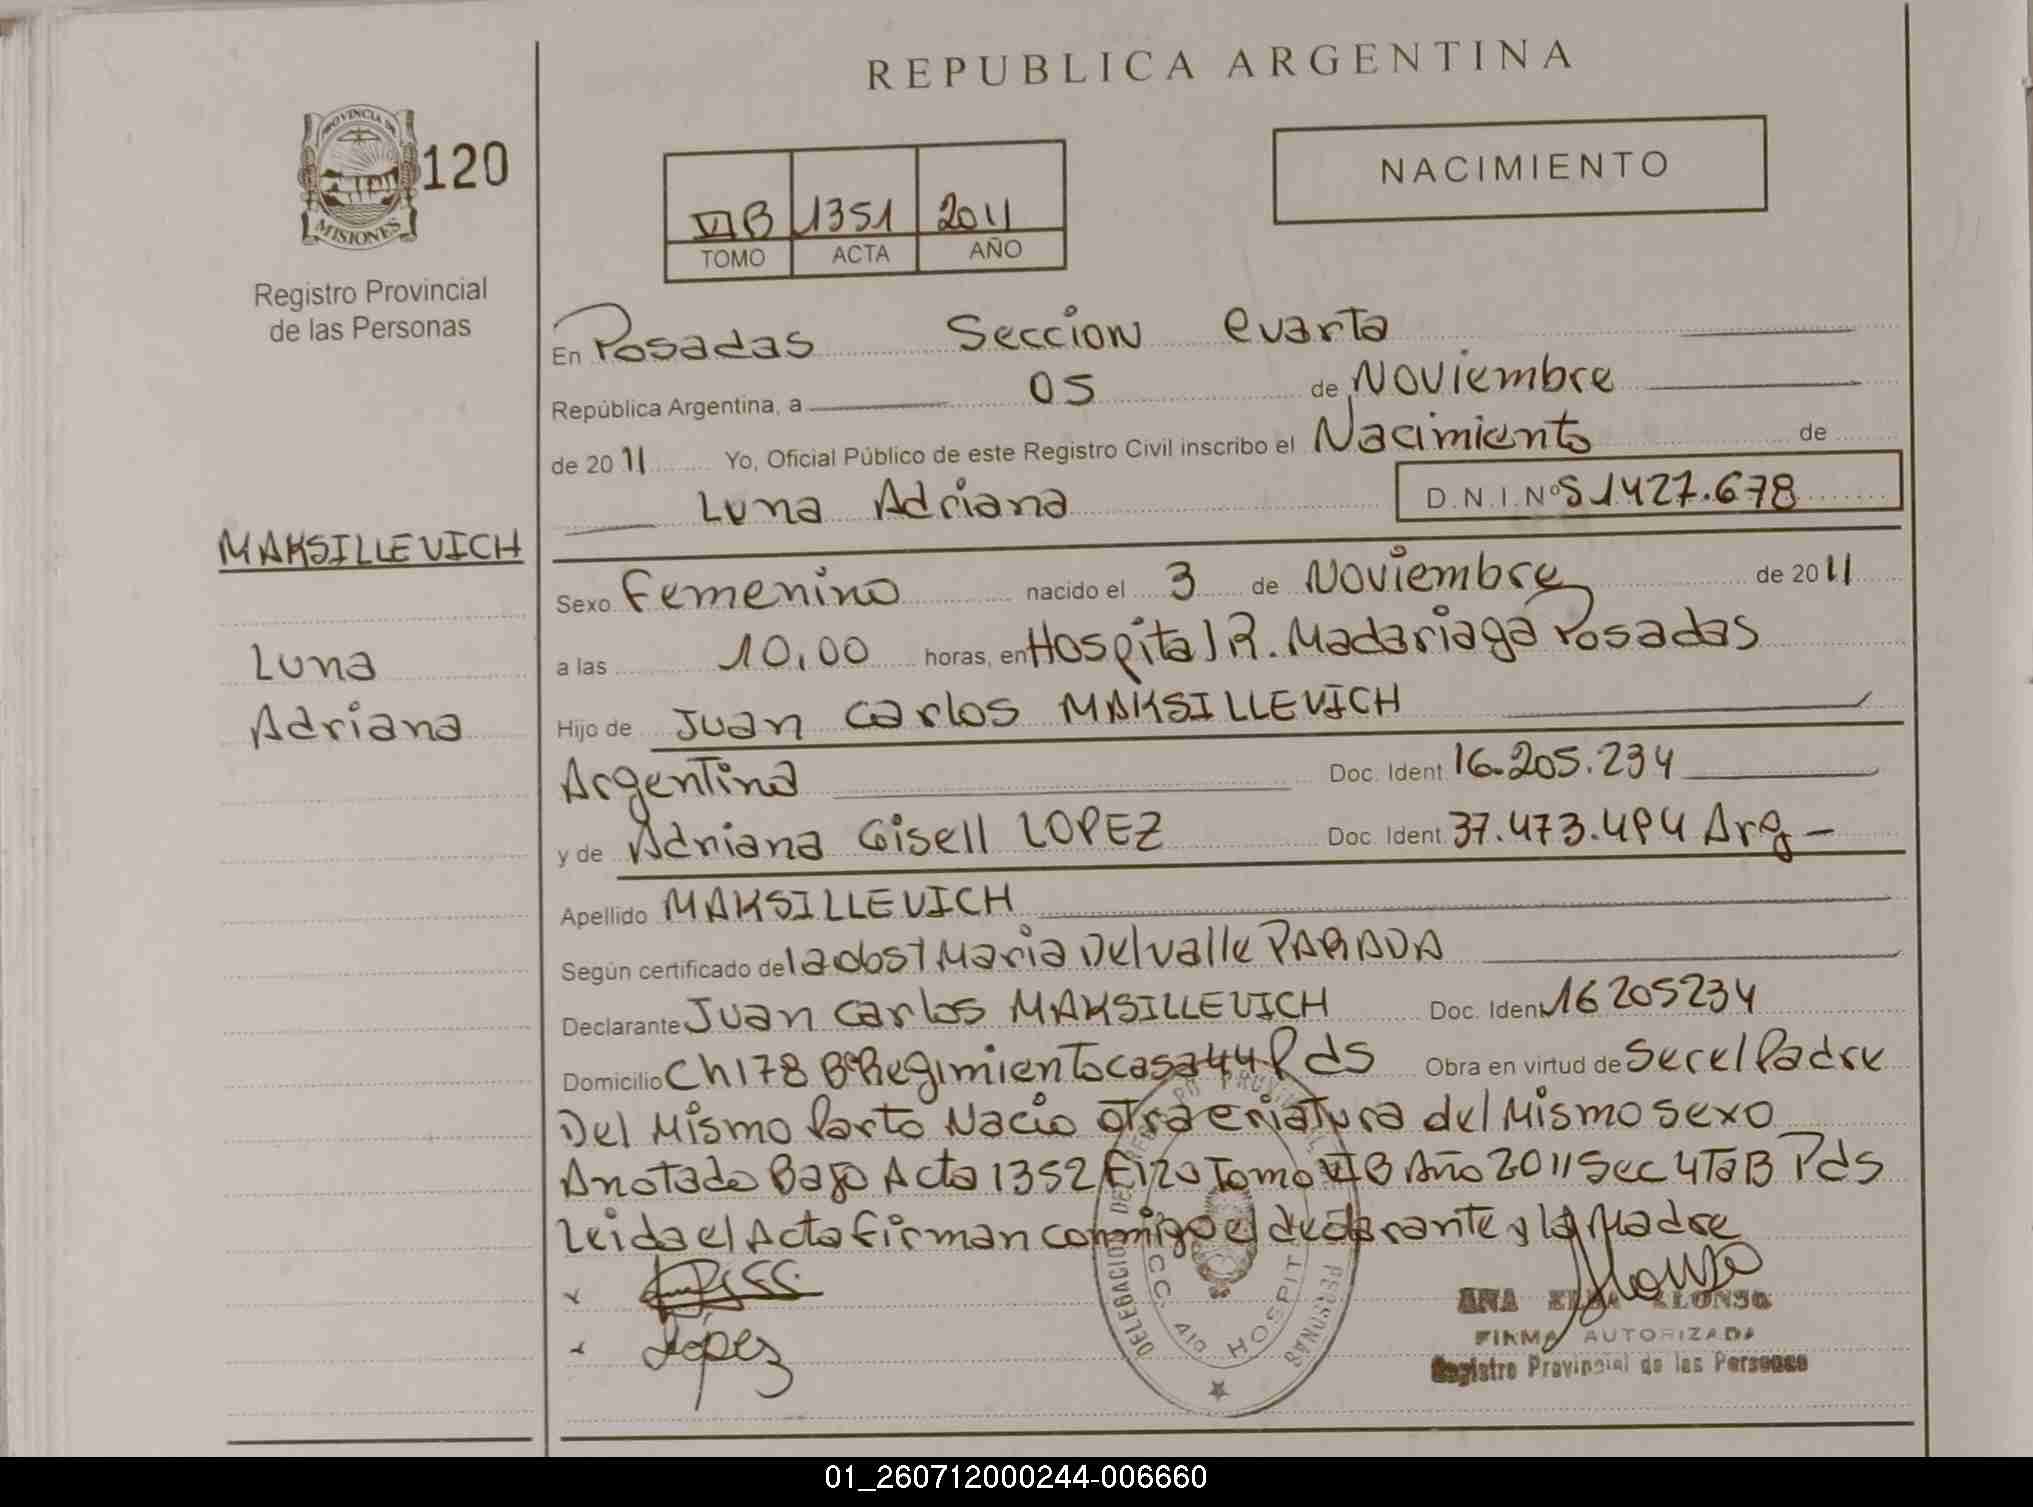 REPUBLICA ARGENTINA
PROVINCIA DE
MISIONES
120
Registro Provincial
de las Personas
NACIMIENTO
VI B 1351 2011
TOMO ACTA AÑO
En Posadas Seccion Cuarta
República Argentina, a 05 de Noviembre
de 20 11 Yo, Oficial Público de este Registro Civil inscribo el Nacimiento de
Luna Adriana D.N.I. Nº 51427.678
MAKSILLEVICH
Luna
Adriana
Sexo Femenino nacido el 3 de Noviembre de 20 11
a las 10,00 horas, en Hospital R. Madariaga Posadas
Hijo de Juan Carlos MAKSILLEVICH
Argentina Doc. Ident. 16.205.234
y de Adriana Gisell LOPEZ Doc. Ident. 37.473.494 Arg
Apellido MAKSILLEVICH
Según certificado de la obst Maria Del valle PARADA
Declarante Juan Carlos MAKSILLEVICH Doc. Ident. 16205234
Domicilio Ch 178 Bº Regimiento casa 44 Pds Obra en virtud de Ser el Padre
Del Mismo Parto Nacio otra criatura del Mismo sexo
Anotado Bajo Acta 1352 Tomo VI B Año 2011 Sec 4Ta B Pds
Leida el Acta firman conmigo el declarante y la Madre
López
ANA ELBA ALONSO
FIRMA AUTORIZADA
Registro Provincial de las Personas
HOSPIT
PERSONAS
01_260712000244-006660